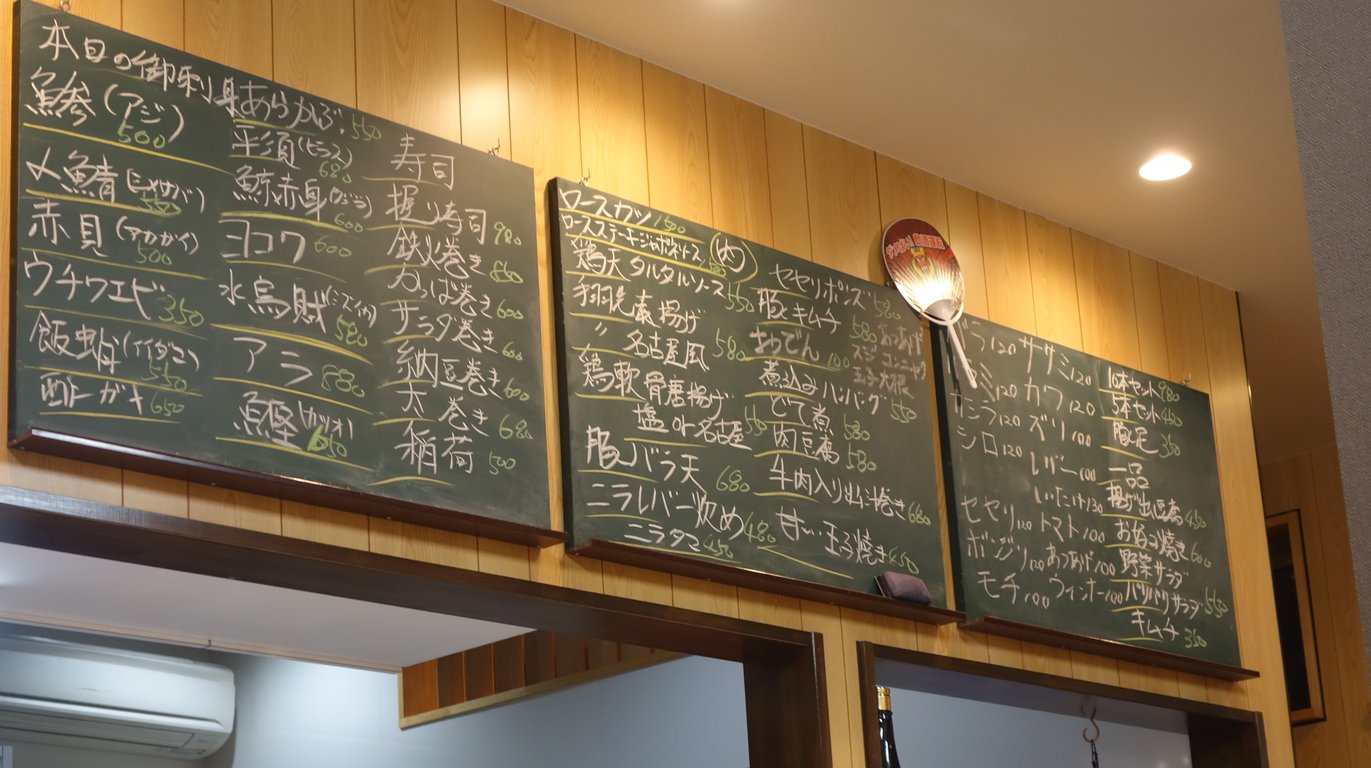 本日の御刺身
鯵(アジ)
500
〆鯖(シメサバ)
550
赤貝(アカガイ)
500
ウチワエビ 350
飯蛸(イイダコ)
550
酢ガキ 650
あらかぶ 550
平須(ヒラス)
680
鯨赤身(クジラ)
600
ヨコワ 600
水烏賊(ミズイカ)
580
アラ 880
鰹(カツオ)
650
寿司
握り寿司 980
鉄火巻き 880
かっぱ巻き 600
サラダ巻き 600
納豆巻き 600
太巻き 680
稲荷 500
ロースカツ
ロースステーキジャポネソース
鶏天タルタルソース 550
手羽先素揚げ
〃 名古屋風 580
鶏軟骨唐揚げ
塩or名古屋 550
豚バラ天 680
ニラレバー炒め 480
ニラタマ 450
(肉)
セセリポンズ 580
豚キムチ 580
おでん 100
あつあげ
スジ コンニャク
玉子 大根
煮込みハンバーグ 550
どて煮 580
肉豆腐 580
牛肉入り出汁巻き 680
甘い玉子焼き 450
バラ120
ミミ120
シロ120
セセリ120
ボンジリ120
モチ100
ササミ120
カワ120
ズリ100
レバー100
しいたけ130
トマト100
あつあげ100
ウィンナー100
10本セット980
5本セット450
豚足 350
一品
揚げ出し豆腐 450
お好み焼き 600
野菜サラダ
パリパリサラダ 550
キムチ 350